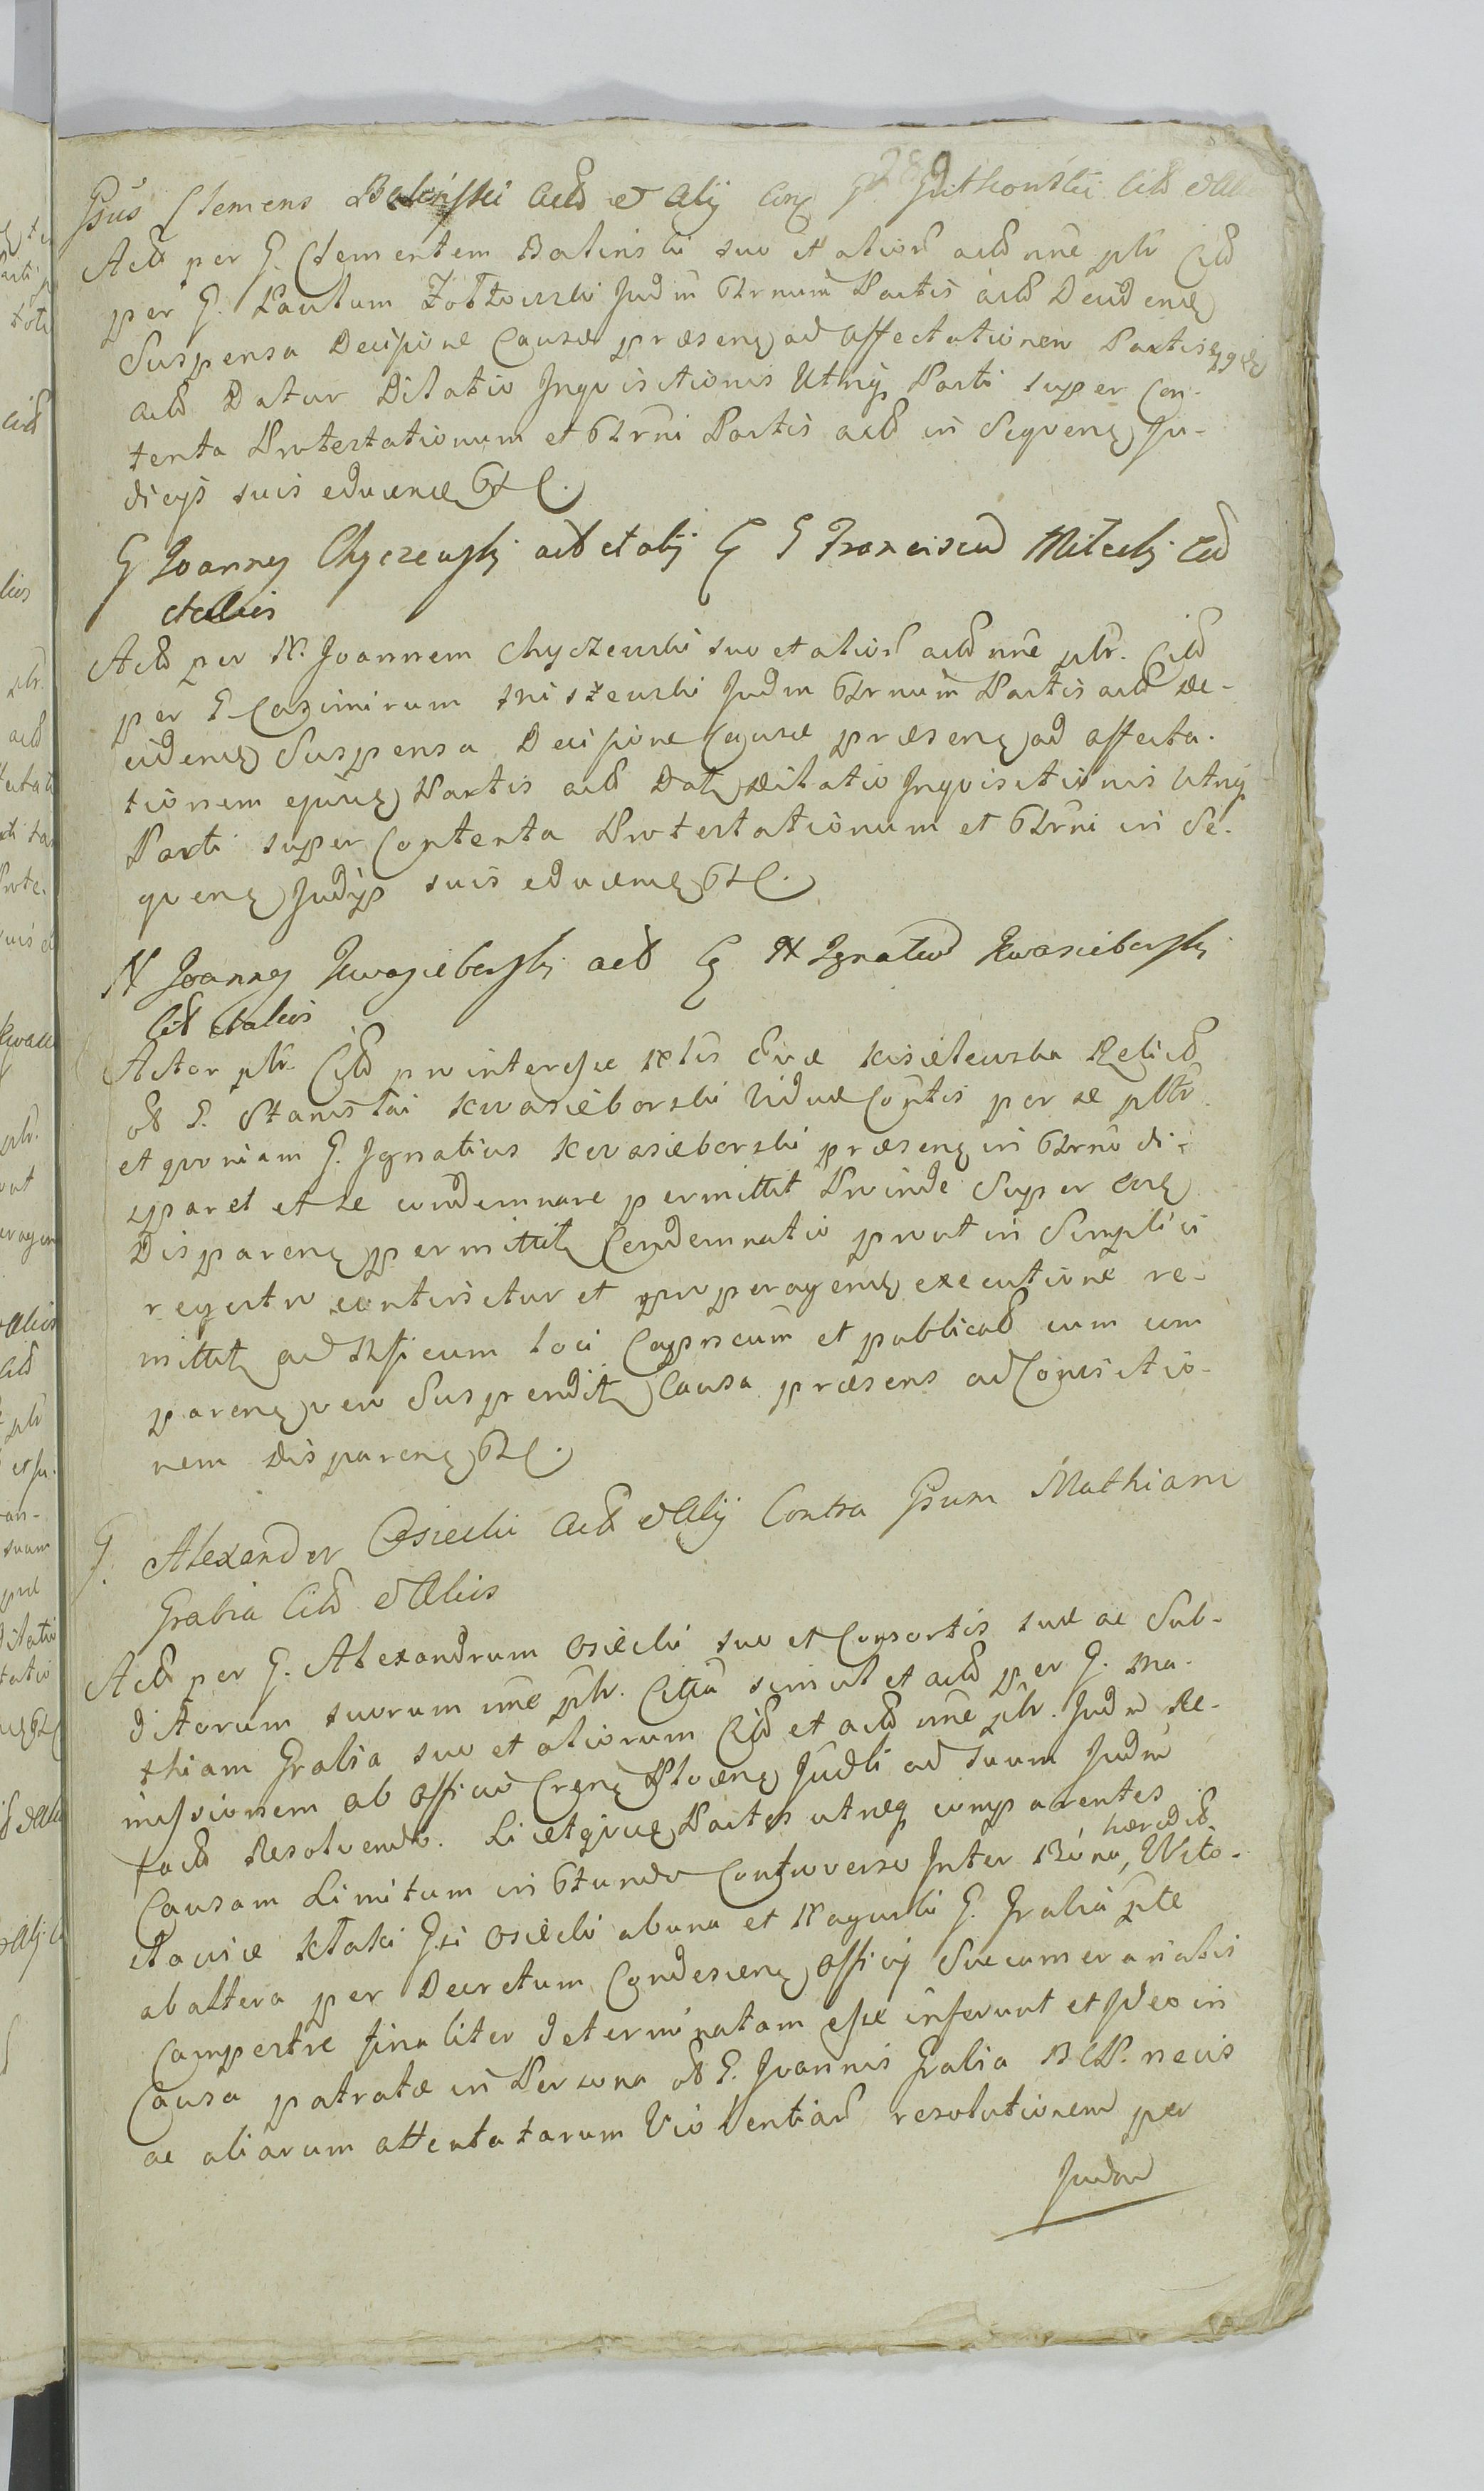 289
Gsus Clemens Baliński Actt et Alij Con G Gutkowski Citt et Al
Actt per G. Clementem Balinski suo et alior actt nne ptr Citt
per G. Paulum Zołtowski Judm Ptrnum Partis actt Decidenč
Suspensa Decisione Causæ præsenč ad affectationem Partis ejusč
actt Datur Dilatio Inqvisitionis Utriq Parti super Con-
tenta Protestationum et Ptrni Partis actt in Seqvenč Ju-
dicijs suis educenč Ptt C.
G Joannes Chyczewski actt et alij C G Franciscu Milecki Citt
et aliis
Actt per N. Joannem Chyczewski suo et alior actt nne ptr. Citt
per G Casimirum Sniszewski Judm Ptrnum Partis actt De-
cidenč Suspensa Decisione Causæ præsenč ad affecta-
tionem ejusč Partis actt Datč Dilatio Inqvisitionis Utriq
Parti super Contenta Protestationum et Ptrni in Se-
qvenč Judijs suis educenč Ptt C.
N Joannes Kwasieborski actt C N Ignatiu Kwasieborski
Citt et aliis
Actor ptr. Citt pro interesse Nlis Evæ Kisielewska Relictt
ott G. Stanislai Kwasieborski Viduæ Contis per se ptr
et qvoniam G. Ignatius Kwasieborski præsenč in Ptrno di-
sparet et se condemnare permittit Proinde Super eoč
Disparenč permittitč Condemnatio prout in Simplici
regestro continetur et pro peragenč executione re-
mittitč ad Officium loci Capneum et publicatt cum com
parenč vero Suspenditč Causa præsens ad Convictio-
nem Disparenč Ptt C.
G. Alexander Osiecki Actt et Alij Contra Gsum Mathiam
Grabia Citt et Aliis
Actt per G. Alexandrum Osiecki suo et Consortis suæ ac Sub-
ditorum suorum nne ptr. Citta simul et actt per G. Ma-
thiam Grabia suo et aliorum Citt et actt nne ptr. Judm Re-
missionem ab officio Crenč Plocenč Judli ad suum Judm
factt Resolvendo. Licet qvæč Partes utræq comparentes
Causam Limitum in Ptundo Controverso Inter Bona, hæreditt Wito-
sławice Ktaki Gsi Osiecki ab una et Nagurki G. Grabia pte
ab altera per Decretum Condescenč Officij Succamerarialis
Campestre finaliter determinatam esse inferunt et ideo in
Causa patratæ in Persona ott G. Joannis Grabia B CP. necis
ac aliarum attentatarum Violentiar resolutionem per
Judm